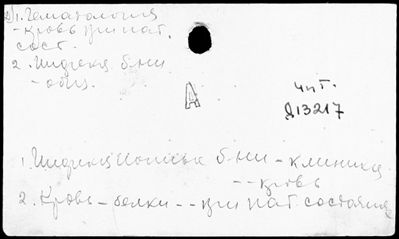 1. Гематология
- кровь при пат.
сост.
2. Индекц. б-ни
- общ.
А
Чит.
Д13217
1. Инфекционные б-ни - клиника
-- кровь
2. Кровь - белки -- при пат. состояниях